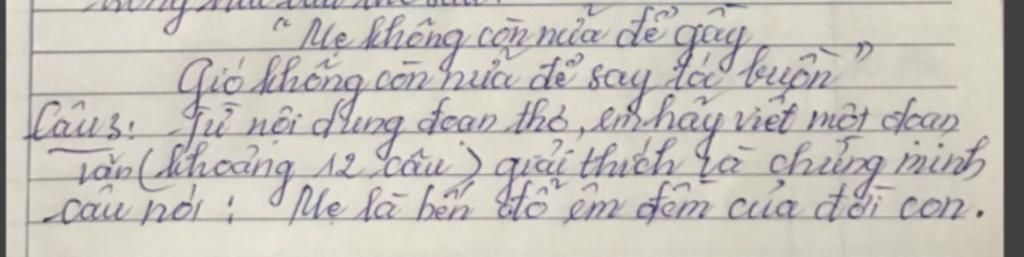 "Mẹ không còn nữa để gầy
Gió không còn nữa để say tóc buồn"
Câu 3: Từ nội dung đoạn thơ, em hãy viết một đoạn
văn (khoảng 12 câu) giải thích và chứng minh
câu nói: Mẹ là bến đỗ êm đềm của đời con.